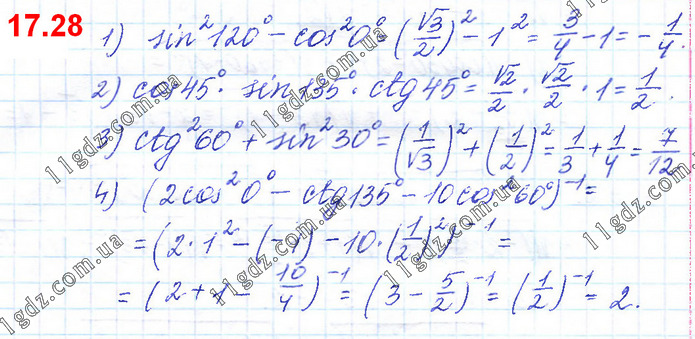 17.28
1) sin²120° - cos²0° = (√3/2)² - 1² = 3/4 - 1 = -1/4.
2) cos45° · sin135° · ctg45° = √2/2 · √2/2 · 1 = 1/2.
3) ctg²60° + sin²30° = (1/√3)² + (1/2)² = 1/3 + 1/4 = 7/12
4) (2cos²0° - ctg135° - 10cos²60°)⁻¹ =
= (2 · 1² - (-1) - 10 · (1/2)²)⁻¹ =
= (2 + 1 - 10/4)⁻¹ = (3 - 5/2)⁻¹ = (1/2)⁻¹ = 2.
11gdz.com.ua
11gdz.com.ua
11gdz.com.ua
11gdz.com.ua
11gdz.com.ua